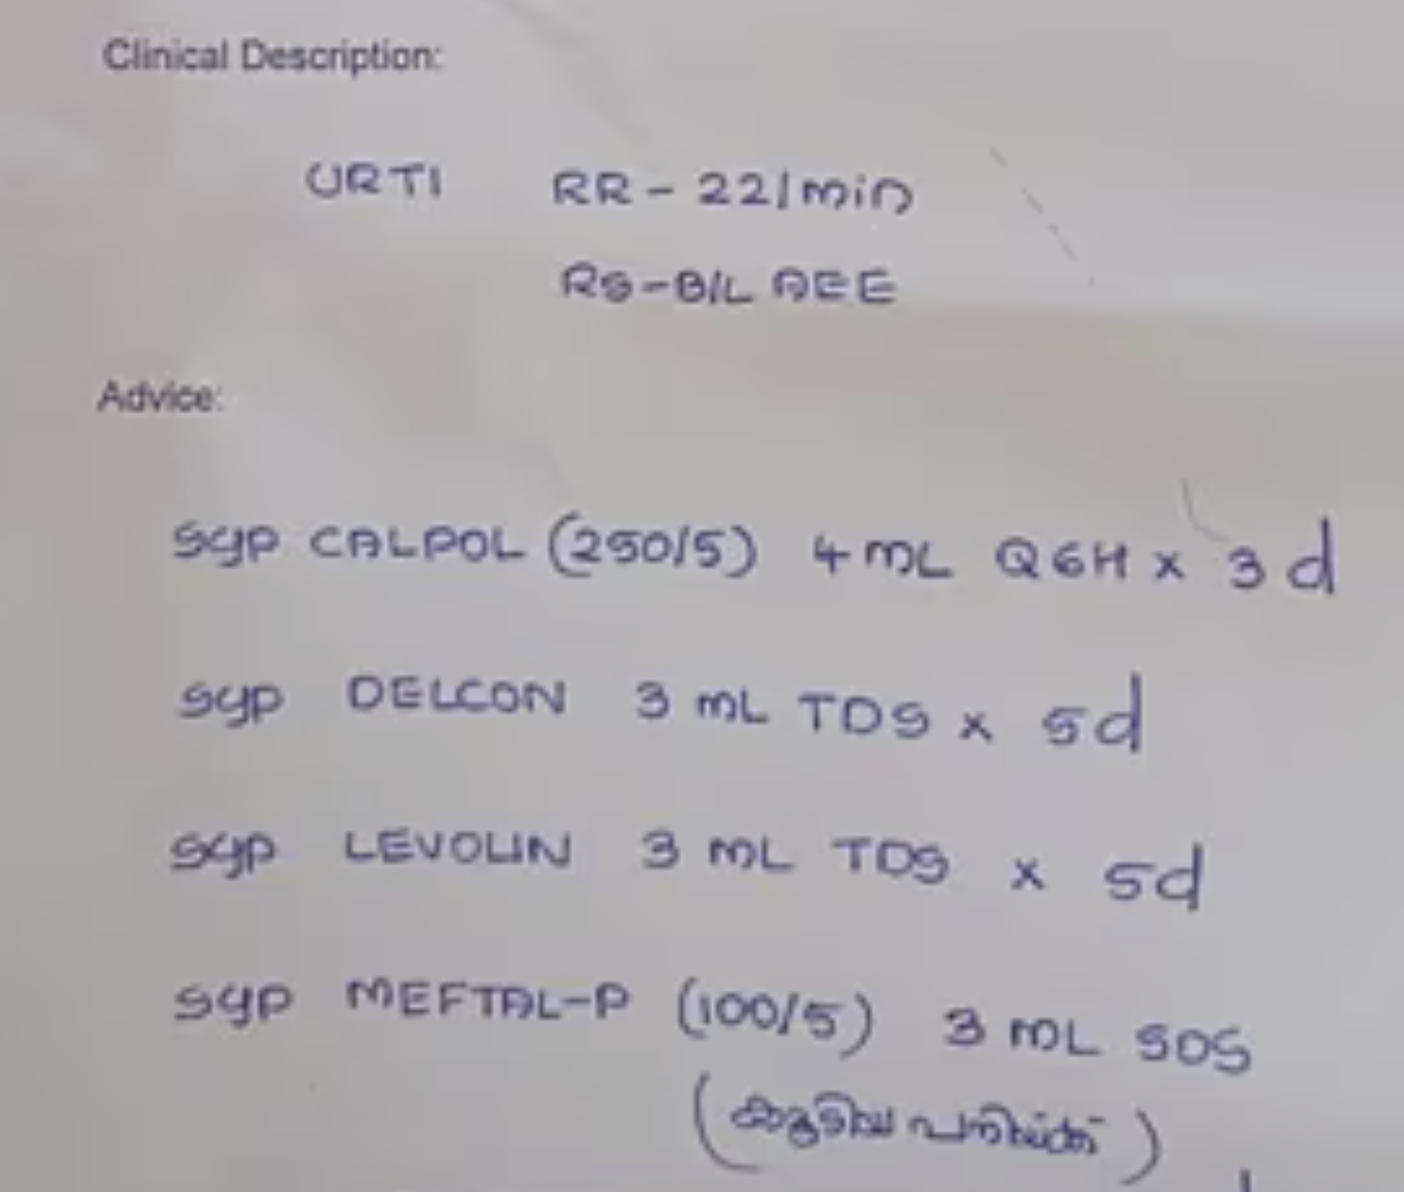 Clinical Description:
URTI RR - 22/min
RS - B/L AEE
Advice:
syp CALPOL (250/5) 4 mL Q6H x 3 d
syp DELCON 3 mL TDS x 5d
syp LEVOLIN 3 mL TDS x 5d
syp MEFTAL-P (100/5) 3 mL SOS
(കൂടിയ പനിയ്ക്ക്)